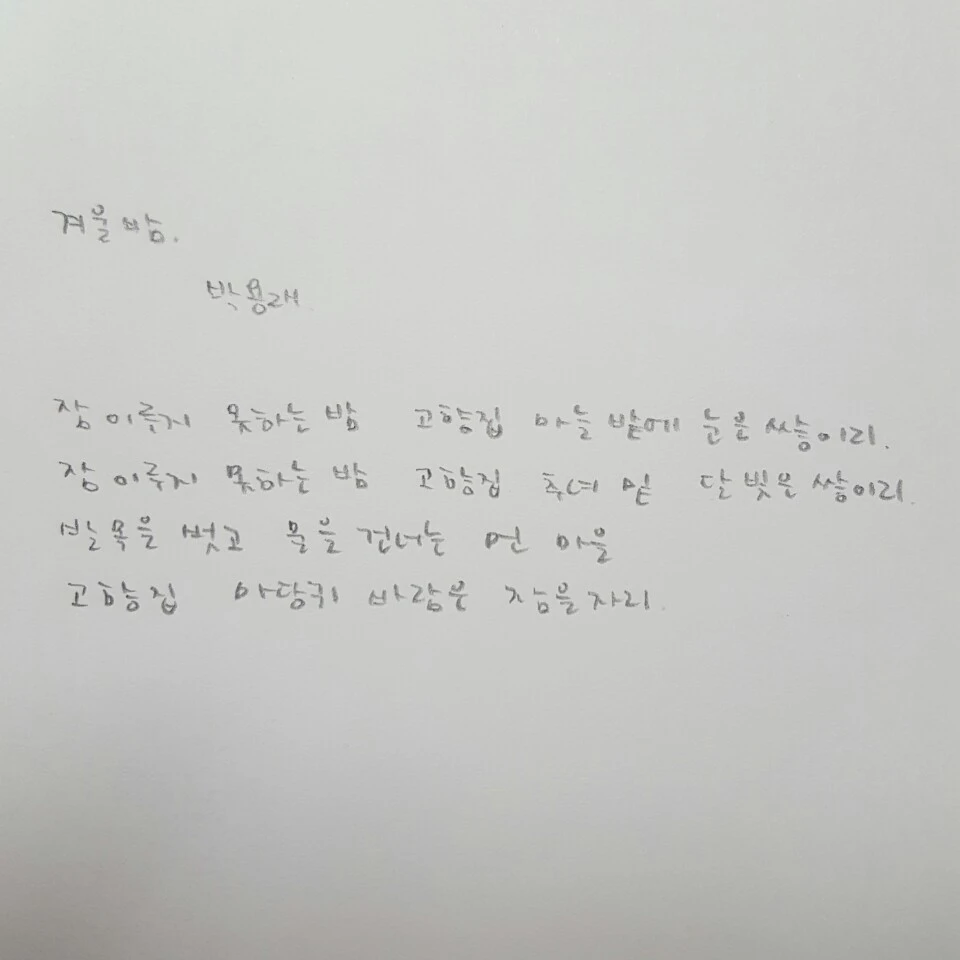 겨울밤.
박용래
잠 이루지 못하는 밤 고향집 마늘 밭에 눈은 쌓이리.
잠 이루지 못하는 밤 고향집 추녀 밑 달빛은 쌓이리.
발목을 벗고 물을 건너는 먼 마을
고향집 마당귀 바람은 잠을 자리.